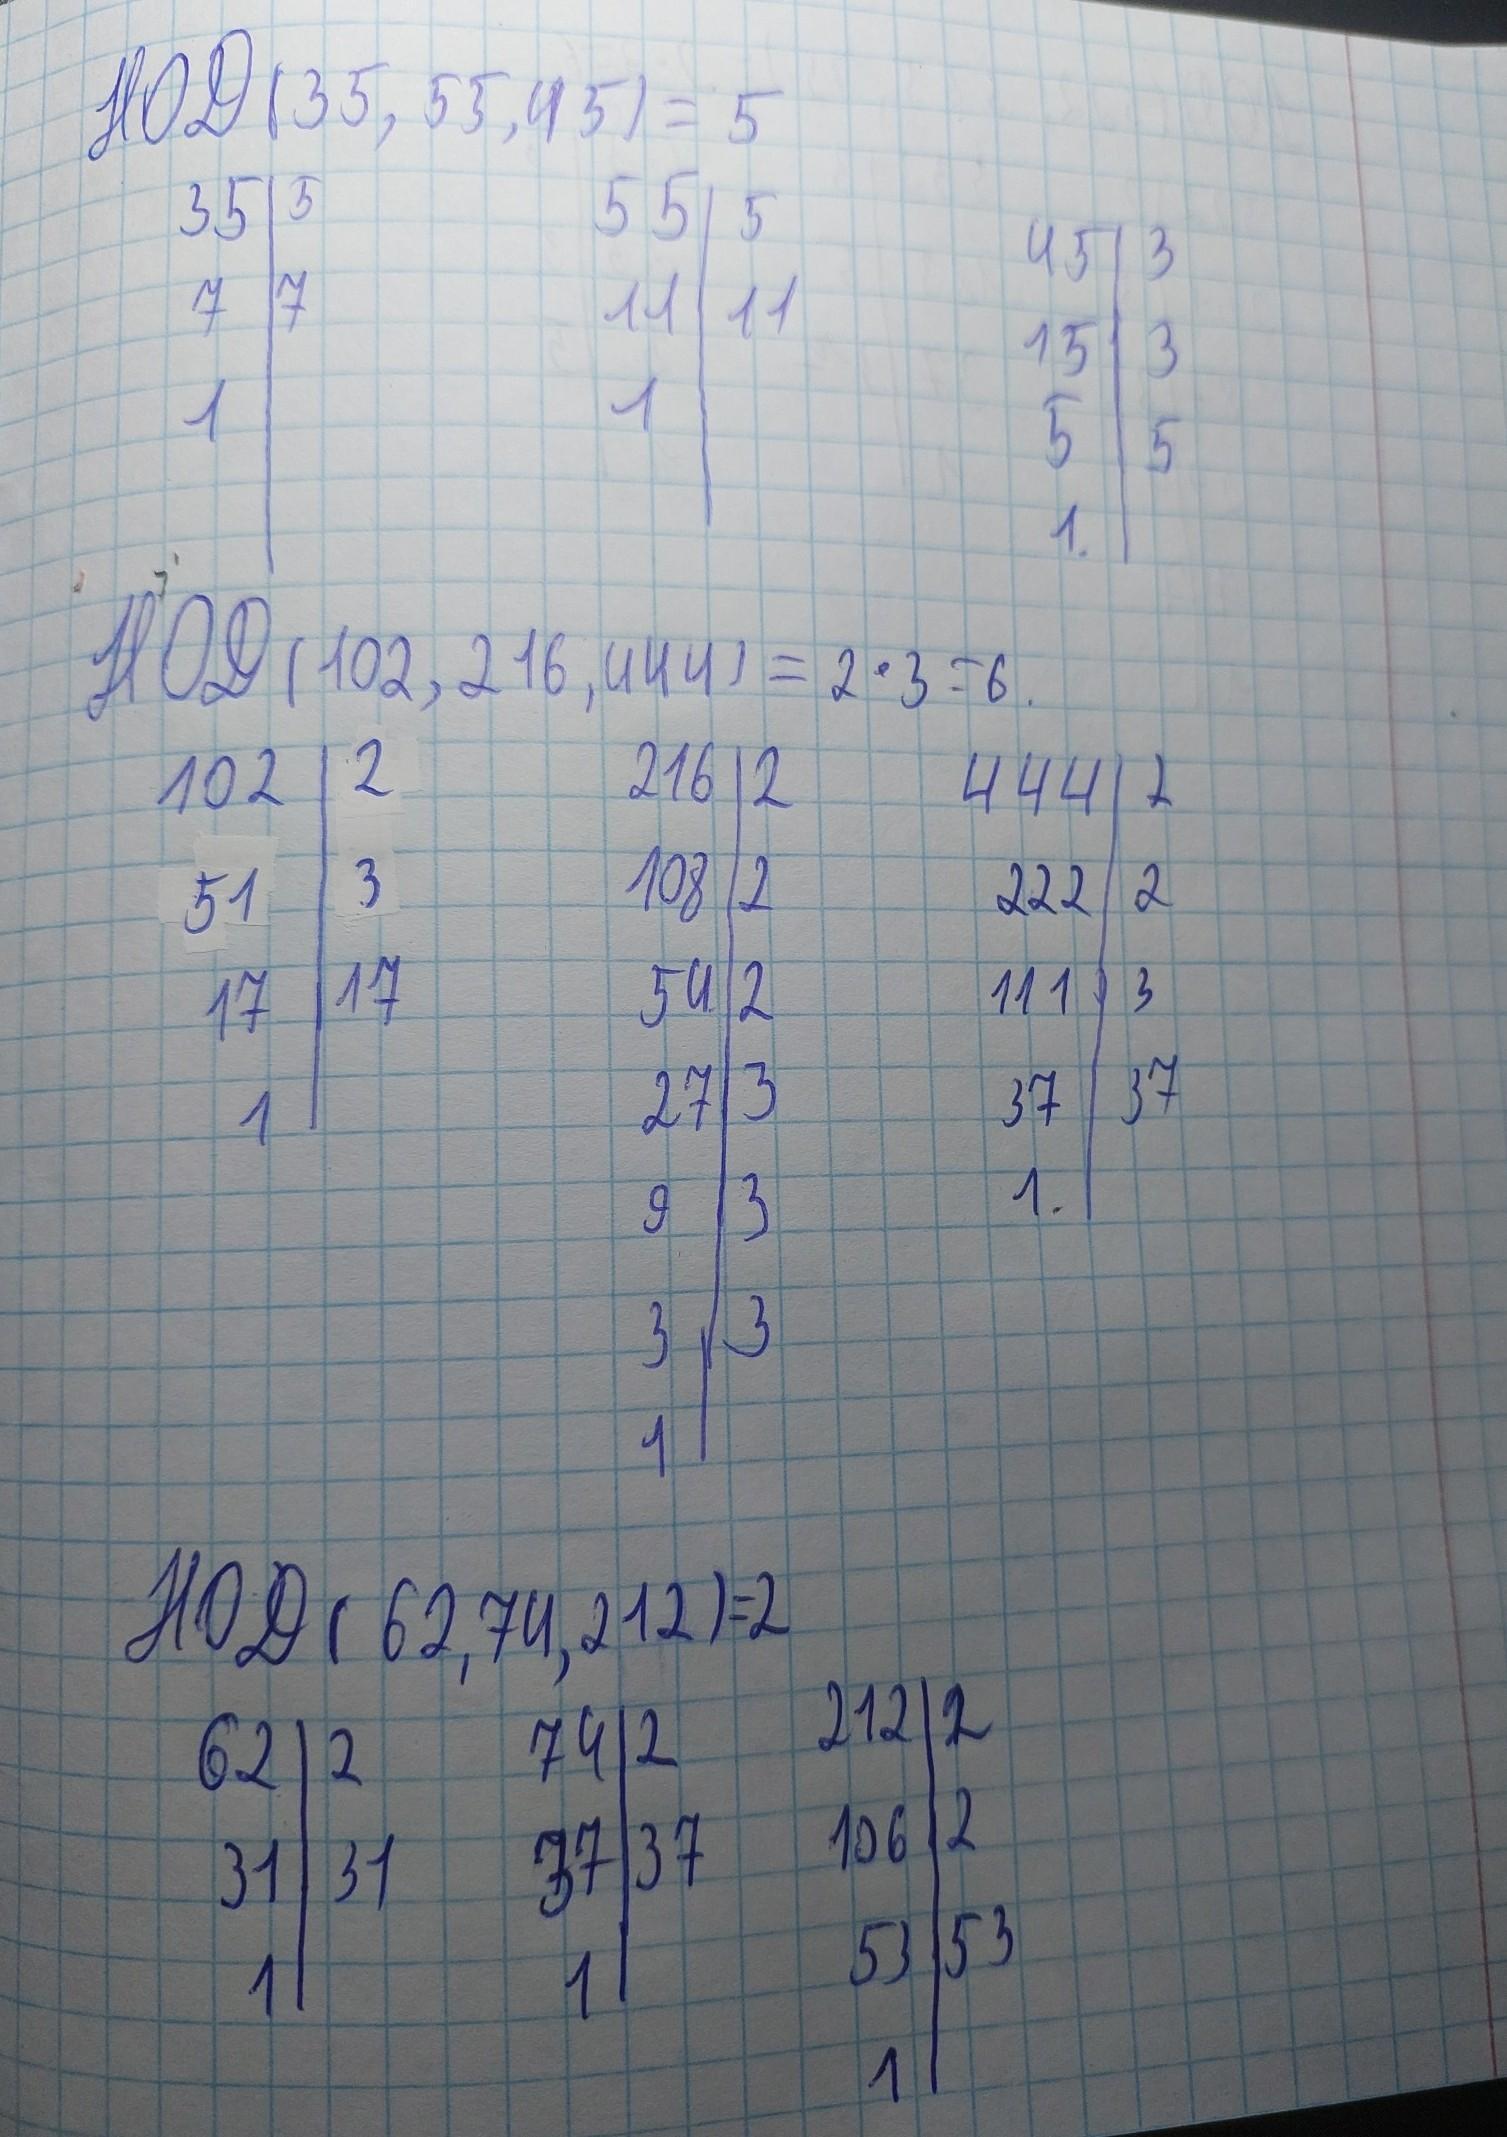 НОД (35, 55, 45) = 5
35 | 5 55 | 5 45 | 3
7 | 7 11 | 11 15 | 3
1 | 1 | 5 | 5
1. |
НОД (102, 216, 444) = 2 · 3 = 6.
102 | 2 216 | 2 444 | 2
51 | 3 108 | 2 222 | 2
17 | 17 54 | 2 111 | 3
1 | 27 | 3 37 | 37
9 | 3 1. |
3 | 3
1 |
НОД (62, 74, 212) = 2
62 | 2 74 | 2 212 | 2
31 | 31 37 | 37 106 | 2
1 | 1 | 53 | 53
1 |